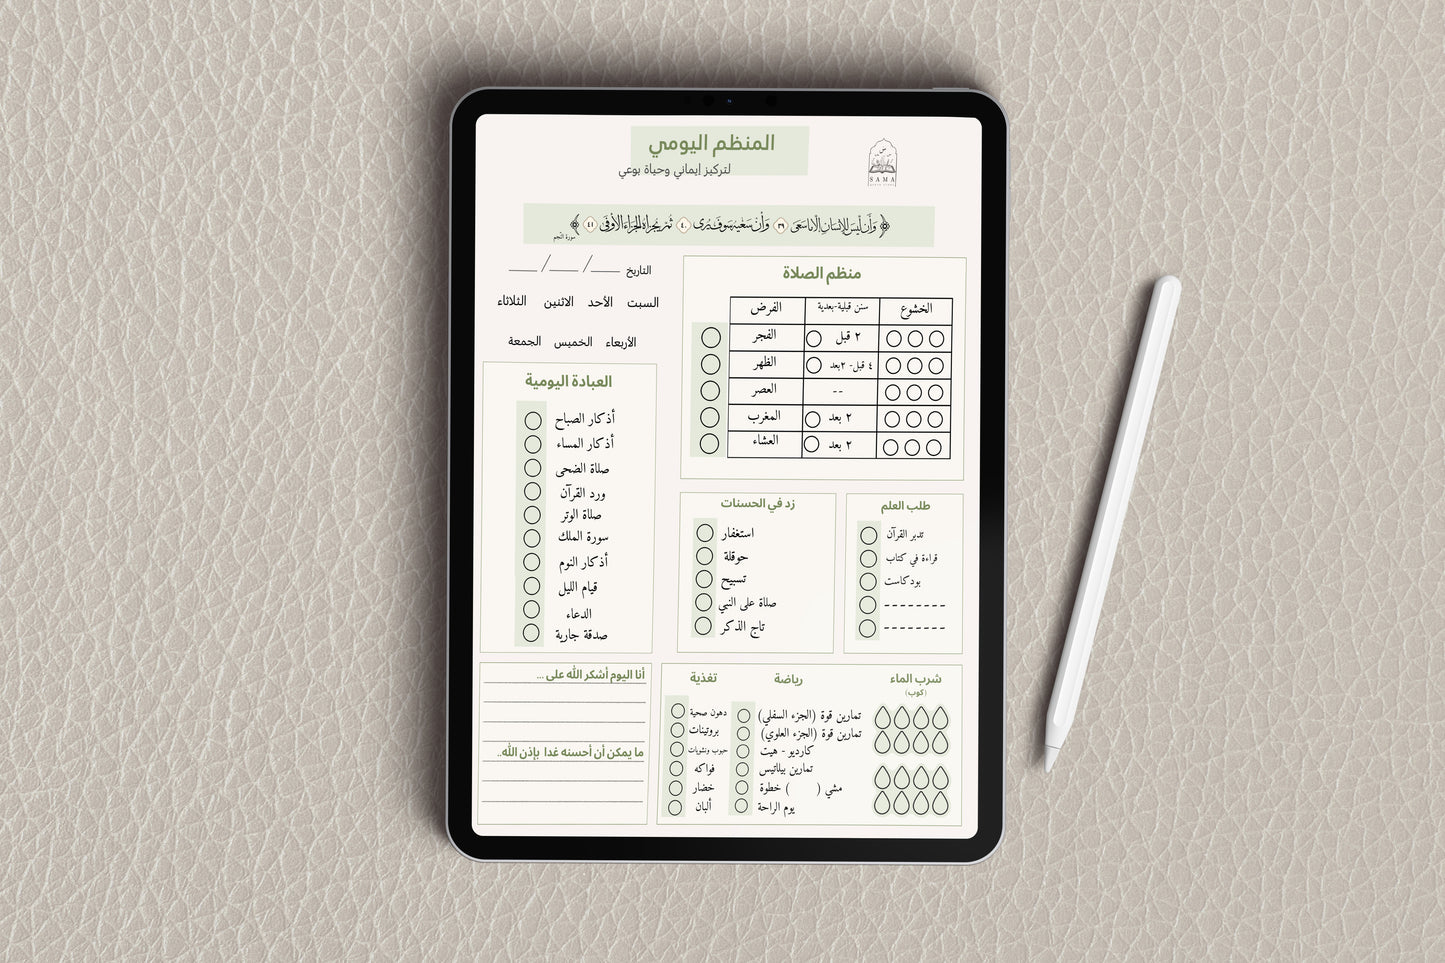 المنظم اليومي
لتركيز إيماني وحياة بوعي
SAMA
﴿وَأَن لَّيْسَ لِلْإِنسَانِ إِلَّا مَا سَعَى ٣٩ وَأَنَّ سَعْيَهُ سَوْفَ يُرَى ٤٠ ثُمَّ يُجْزَاهُ الْجَزَاءَ الْأَوْفَى ٤١﴾
سورة النجم
منظم الصلاة
الخشوع سنن قبلية-بعدية الفرض
٢ قبل الفجر
٤ قبل- ٢بعد الظهر
-- العصر
٢ بعد المغرب
٢ بعد العشاء
التاريخ ___/___/___
السبت الأحد الاثنين الثلاثاء
الأربعاء الخميس الجمعة
العبادة اليومية
أذكار الصباح
أذكار المساء
صلاة الضحى
ورد القرآن
صلاة الوتر
سورة الملك
أذكار النوم
قيام الليل
الدعاء
صدقة جارية
طلب العلم
تدبر القرآن
قراءة في كتاب
بودكاست
--------
--------
زد في الحسنات
استغفار
حوقلة
تسبيح
صلاة على النبي
تاج الذكر
شرب الماء
(كوب)
رياضة
تمارين قوة (الجزء السفلي)
تمارين قوة (الجزء العلوي)
كارديو - هيت
تمارين بيلاتيس
مشي ( ) خطوة
يوم الراحة
تغذية
دهون صحية
بروتينات
حبوب ونشويات
فواكه
خضار
ألبان
أنا اليوم أشكر الله على ...
ما يمكن أن أحسنه غدا بإذن الله..